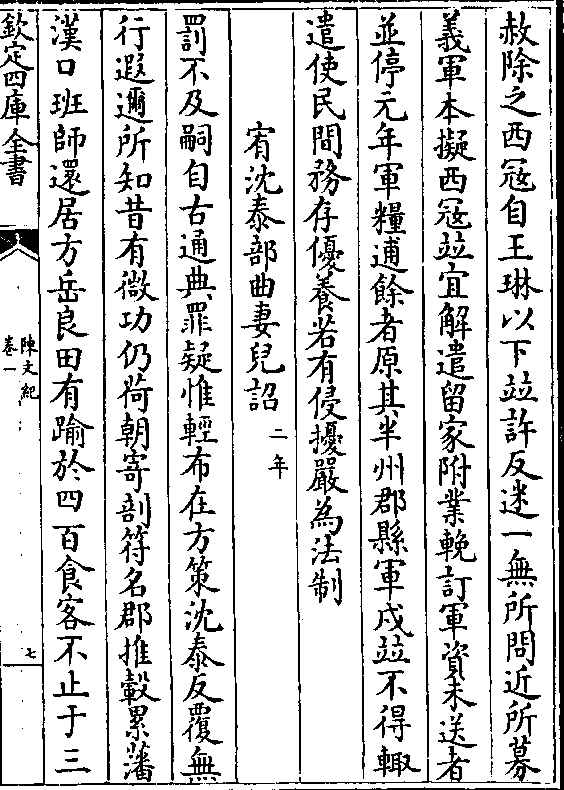 赦除之西冦自王琳以下竝許反迷一無所問近所募
義軍本擬西冦竝宜解遣留家附業輓訂軍資未送者
並停元年軍糧逋餘者原其半州郡縣軍戍竝不得輙
遣使民間務存優養若有侵擾嚴為法制
宥沈泰部曲妻兒詔 二年
罰不及嗣自古通典罪疑惟輕布在方策沈泰反覆無
行遐邇所知昔有微功仍荷朝寄剖符名郡推轂累藩
漢口班師還居方岳良田有踰於四百食客不止于三
欽定四庫全書
陳文紀
卷一
七